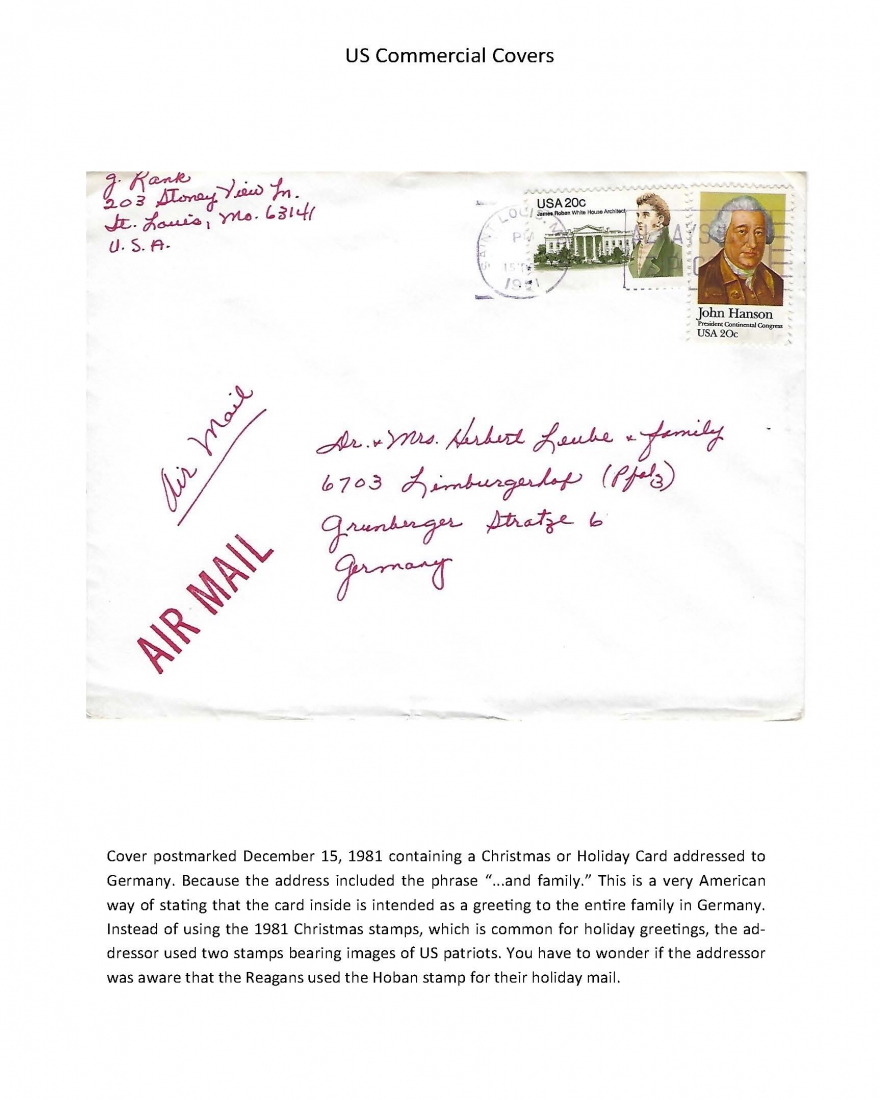 US Commercial Covers
J. Rank
203 Stoney View Ln.
St. Louis, Mo. 63141
U. S. A.
SAINT LOUIS
PM
15
1981
USA 20c
James Hoban White House Architect
ALWAYS
John Hanson
President Continental Congress
USA 20c
Air Mail
AIR MAIL
Dr. & Mrs. Herbert Leube & family
6703 Limburgerhof (Pfalz)
Grunberger Stratze 6
Germany
Cover postmarked December 15, 1981 containing a Christmas or Holiday Card addressed to
Germany. Because the address included the phrase “...and family.” This is a very American
way of stating that the card inside is intended as a greeting to the entire family in Germany.
Instead of using the 1981 Christmas stamps, which is common for holiday greetings, the ad-
dressor used two stamps bearing images of US patriots. You have to wonder if the addressor
was aware that the Reagans used the Hoban stamp for their holiday mail.